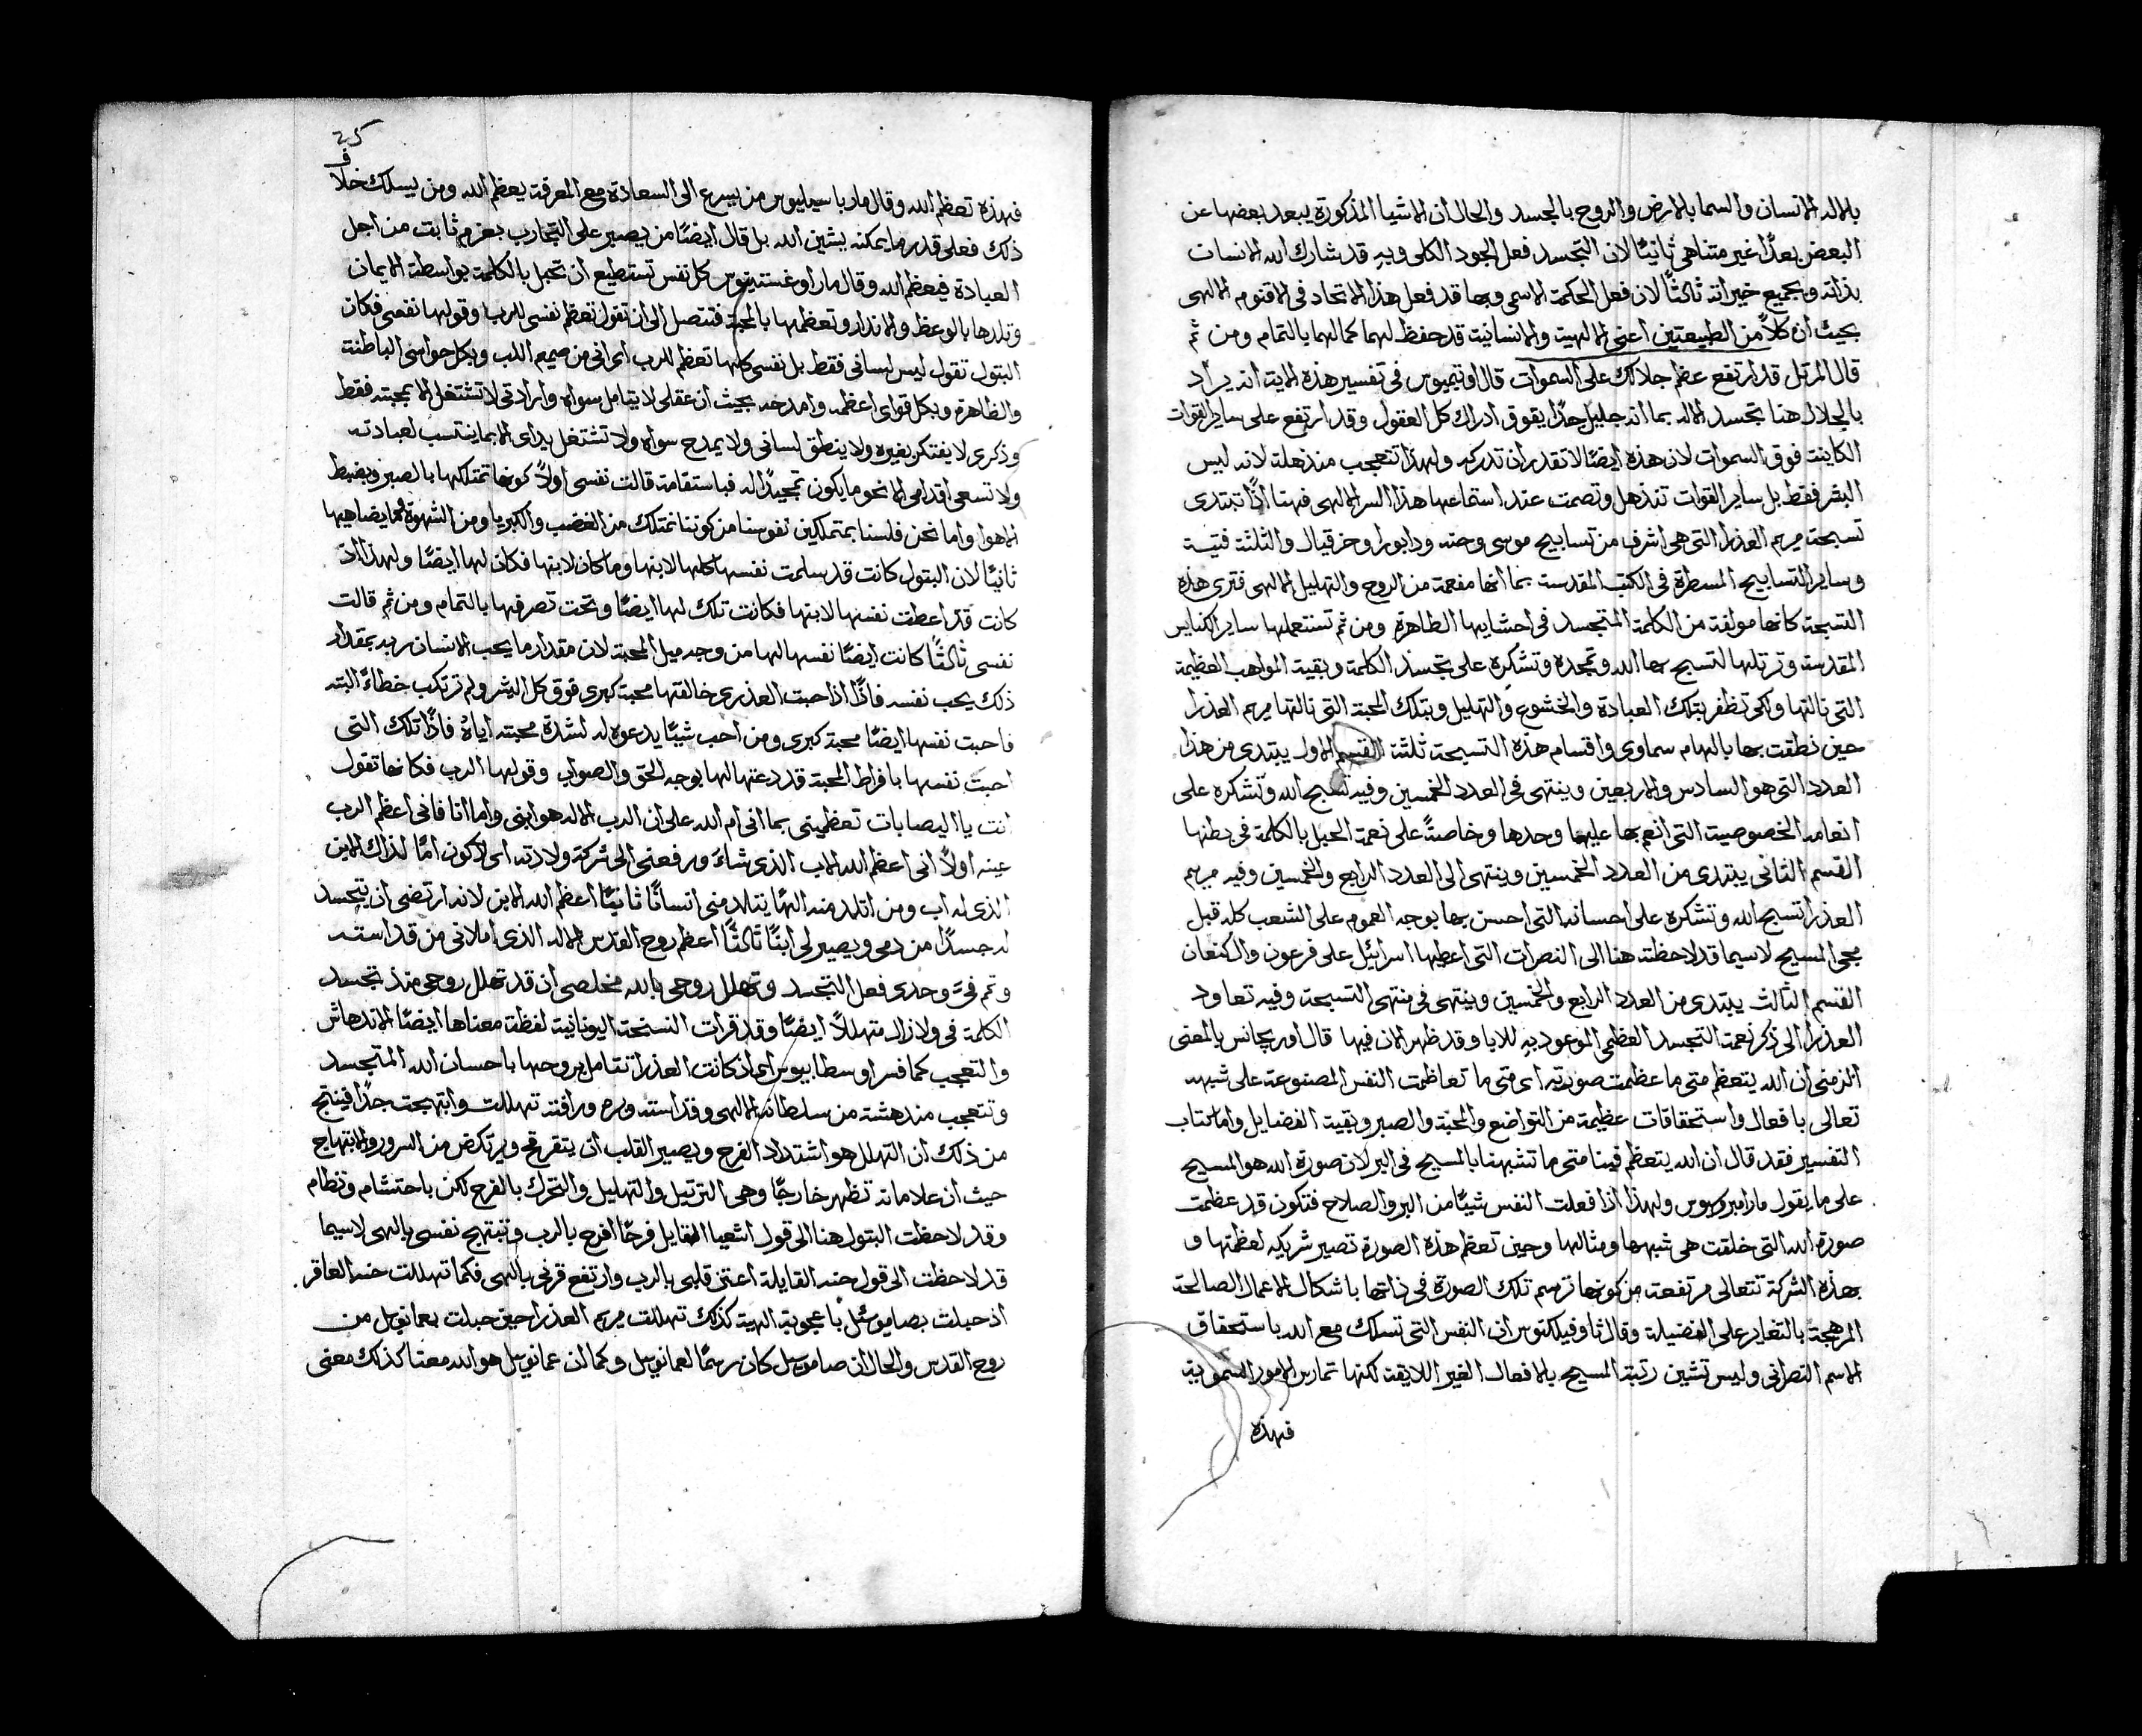 بالاله الانسان والسما بالارض والروح بالجسد والحال ان الاشيا المذكورة يبعد بعضها عن
البعض بعدًا غير متناهي ثانيًا لان التجسد فعل الجود الكلي وبهِ قد شارك الله الانسان
بذاته وبجميع خيراته ثالثًا لان فعل الحكمة الاسمى وبها قد فعل هذا الاتحاد في الاقنوم الالهي
بحيث ان كلاً من الطبيعتين اعني الالهية والانسانية قد حفظ لهما كمالهما بالتمام ومن ثم
قال المرتل قد ارتفع عظم جلالك على السموات قال اوتيميوس في تفسير هذه الاية انه يراد
بالجلال هنا تجسد الاله بما انه جليل جدًا يفوق ادراك كل العقول وقد ارتفع على ساير القوات
الكاينة فوق السموات لان هذه ايضًا لا تقدر ان تدركه ولهذا تتعجب منذهلة لانه ليس
البشر فقط بل ساير القوات تنذهل وتصمت عند استماعها هذا السر الالهي فهنا اذًا تبتدي
تسبحة مريم العذرا التي هي اشرف من تسابيح موسى وحنه ودابورا وحزقيال والثلثة فتية
وساير التسابيح المسطرة في الكتب المقدسة بما انها مفعمة من الروح والتهليل الالهي فترى هذه
التسبحة كانها مولفة من الكلمة المتجسد في احشايها الطاهرة ومن ثم تستعملها ساير الكنايس
المقدسة وترتلها لتسبح بها الله وتمجده وتشكره على تجسد الكلمة وبقية المواهب العظيمة
التي نالتها ولكي تظفر بتلك العبادة والخشوع والتهليل وبتلك المحبة التي نالتها مريم العذرا
حين نطقت بها بالهام سماوي واقسام هذه التسبحة ثلثة القسم الاول يبتدي من هذا
العدد التي هو السادس والاربعين وينتهى في العدد الخمسين وفيه تسبح الله وتشكره على
انعامه الخصوصية التي انعم بها عليها وحدها وخاصةً على نعمة الحبل بالكلمة في بطنها
القسم الثاني يبتدي من العدد الخمسين وينتهى الى العدد الرابع والخمسين وفيه مريم
العذرا تسبح الله وتشكره على احسانه التي احسن بها بوجه العموم على الشعب كله قبل
مجي المسيح لاسيما قد لاحظت هنا الى النصرات التي اعطيها اسرائيل على فرعون والكنعان
القسم الثالث يبتدي من العدد الرابع والخمسين وينتهى في منتهى التسبحة وفيه تعاود
العذرا الى ذكر نعمة التجسد العظمى الموعود بهِ للابا وقد ظهر الان فيها قال اوريجانس بالمعنى
الزمني ان الله يتعظم متى ما عظمت صورته اي متى ما تعاظمت النفس المصنوعة على شبهه
تعالى بافعال واستحقاقات عظيمة من التواضع والمحبة والصبر وبقية الفضايل واما كتاب
التفسير فقد قال ان الله يتعظم فينا متى ما تشبهنا بالمسيح في البر لان صورة الله هو المسيح
على ما يقول مار امبروسيوس ولهذا اذا فعلت النفس شيًا من البر والصلاح فتكون قد عظمت
صورة الله التي خلقت هي شبهها ومثالها وحين تعظم هذه الصورة تصير شريكه لعظمتها و
بهذه الشركة تتعالى مرتفعة من كونها ترسم تلك الصورة في ذاتها باشكال الاعمال الصالحة
المرهجة بالتغاير على الفضيلة وقال ثاوفيلكتوس ان النفس التي تسلك مع الله باستحقاق
الاسم النصراني وليس تشين رتبة المسيح بالافعال الغير اللايقة لكنها تمارس الامور السموية
فهذه
25
فهذه تعظم الله وقال مار باسيليوس من يسرع الى السعادة مع المعرفة يعظم الله ومن يسلك خلاف
ذلك فعلى قدر ما يمكنه يشين الله بل قال ايضًا من يصبر على التجارب بعزم ثابت من اجل
العبادة فيعظم الله وقال مار اوغستينوس كل نفس تستطيع ان تحبل بالكلمة بواسطة الايمان
وتلدها بالوعظ والانذار وتعظمها بالمحبة فتتصل الى ان تقول تعظم نفسي للرب وقولها نفسي فكان
البتول تقول ليس لساني فقط بل نفسي كلها تعظم للرب اي اني من صميم اللب وبكل حواسي الباطنة
والظاهرة وبكل قواي اعظمه وامدحه بحيث ان عقلي لا يتامل سواه وارادتي لا تشتغل الا بمحبته فقط
وذكري لا يفتكر بغيره ولا ينطق لساني ولا يمدح سواه ولا تشتغل يداي الا بما ينتسب لعبادته
ولا تسعى اقدامي الا نحو ما يكون تمجيدًا له فباستقامة قالت نفسي اولاً كونها تمتلكها بالصبر وبضبط
الاهوا واما نحن فلسنا بمتملكين نفوسنا من كوننا نمتلك من الغضب والكبريا ومن الشهوة وما يضاهيها
ثانيًا لان البتول كانت قد سلمت نفسها كلها لابنها وما كان لابنها فكان لها ايضًا ولهذا اذ
كانت قد اعطت نفسها لابنها فكانت تلك لها ايضًا وتحت تصرفها بالتمام ومن ثم قالت
نفسي ثالثًا كانت ايضًا نفسها لها من وجه ميل المحبة لان مقدار ما يحب الانسان ربه بمقدار
ذلك يحب نفسه فاذًا اذا حبت العذرى خالقها محبة كبرى فوق كل البشر ولم ترتكب خطاءً البته
فاحبت نفسها ايضًا محبة كبرى ومن احب شيًا يدعوه له لشدة محبته اياه فاذًا تلك التي
احبت نفسها بافراط المحبة قد دعتها لها بوجه الحق والصواب وقولها الرب فكانها تقول
انت يا اليصابات تعظميني بما اني ام الله على ان الرب الاله هو ابني واما انا فاني اعظم الرب
عينه اولاً اني اعظم الله الاب الذي شاء ورفعني الى شركة ولادته اي لاكون امًا لذاك الابن
الذي له اب ومن اتلد منه الهًا يتلد مني انسانًا ثانيًا اعظم الله الابن لانه ارتضى ان يتجسد
له جسدًا من دمي ويصير لي ابنًا ثالثًا اعظم روح القدس الاله الذي املاني من قداسته
وتم فيَّ وحدي فعل التجسد وتهلل روحي بالله مخلصي ان قد تهلل روحي منذ تجسد
الكلمة في ولا زال متهللاً ايضًا وقد قرات النسخة اليونانية لفظة معناها ايضًا الاندهاش
والتعجب كما فسر اوسطابيوس اي اذ كانت العذرا تتامل بروحها باحسان الله المتجسد
وتتعجب مندهشة من سلطانه الالهي وقداسته وبره ورافته تهللت وابتهجت جدًا فينتج
من ذلك ان التهلل هو اشتداد الفرح ويصير القلب ان يتفرقح ويرتكض من السرور والابتهاج
حيث ان علاماته تظهر خارجًا وهي الترتيل والتهليل والتحرك بالفرح لكن باحتشام ونظام
وقد لاحظت البتول هنا الى قول اشعيا القايل فرحًا افرح بالرب وتبتهج نفسي بالهي لاسيما
قد لاحظت الى قول حنه القايلة اعتز قلبي بالرب وارتفع قرني بالهي فكما تهللت حنه العاقر
اذ حبلت بصاموئل باعجوبة الهية كذلك تهللت مريم العذرا حين حبلت بعمانويل من
روح القدس والحال ان صامويل كان رسمًا لعمانويل وكما ان عمانويل هو الله معنا كذلك معنى